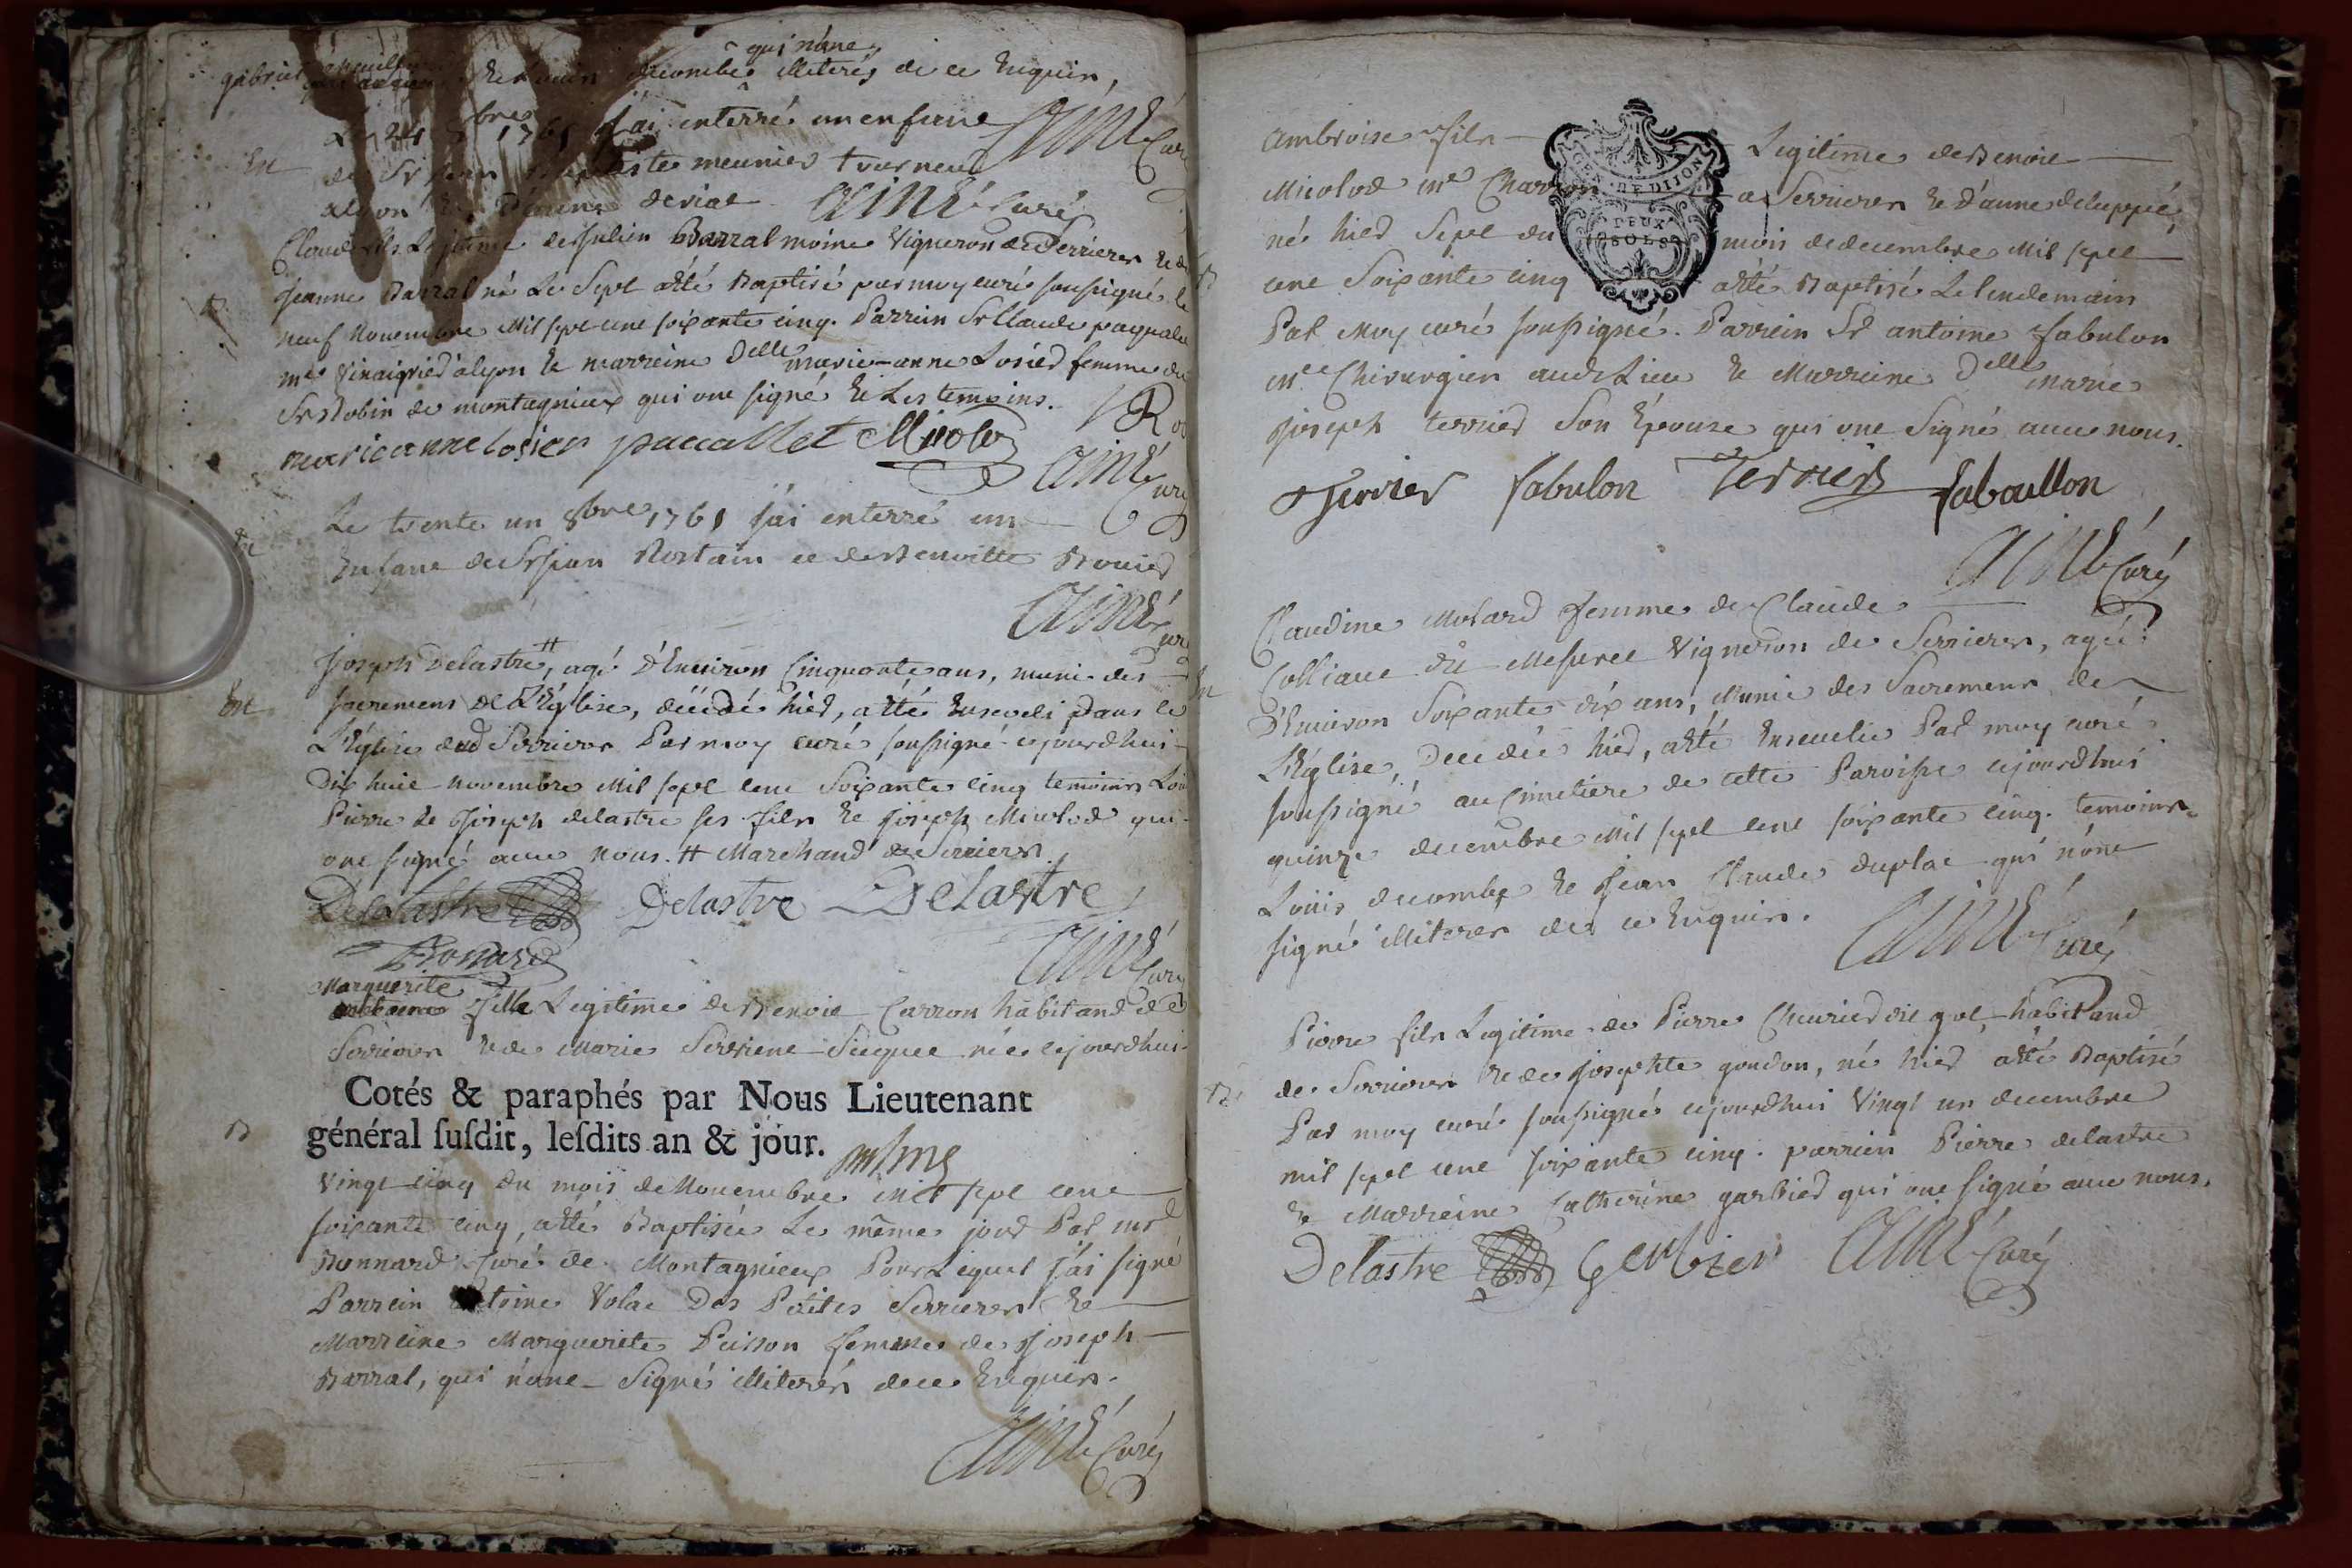 qui n'one
gabriel et Louis decombe illiterés de ce Enquin,
1761 J'ai enterré un enfant
En
de Sr Jean meunier tourneur
Aimé Curé
alyon
Aimé Curé
Claude fils Legitime de Julien Barral moine Vigneron de Serrieres
B
Jeanne Barral né Le Sept atté Baptisé par moy curé soussigné le
neuf Novembre Mil sept cent soixante cinq. Parrein Sr Claude
me Vinaigried à lyon et marreine Delle marie-anne Losied femme du
Sr Robin de montagnieux qui ont signé et Les temoins.
marie anne losier paccallet Micoloz
Aimé Curé
Le trente un 8bre 1761 j'ai enterré un
En
Enfant de Sr Jean Rostain et de Benoitte Bouied
Aimé Curé
Joseph Delastre ++, agé d'Environ Cinquante ans, muni des
Ent
sacremens de L'Eglise, décédé hied, atté Enseveli dans le
L'Eglise dud Serrieres Par moy curé soussigné cejourdhui
Dix huit novembre Mil sept cent Soixante cinq temoins
Pierre et Joseph delastre ses fils et joseph Micolod qui
ont signé avec nous. ++ Marchand de Serrieres.
Delastre Delastre Delastre
Bonard
Aimé Curé
Marguerite
fille Legitime de Benoit Carron habitand de
Serrieres et de Marie Serriene Sicquet née cejourdhui
Cotés & paraphés par Nous Lieutenant
général ſuſdit, leſdits an & jour.
B
Vingt cinq du mois de Novembre Mil sept cent
soixante cinq, atté Baptisée Le même jour Par mr
Bonnard Curé de Montagnieux Pour Lequel j'ai signé
Parrein Antoine Volat Des Petites Serrieres et
Marreine Marguerite Buisson femme de Joseph
Barral, qui n'ont Signé illiterés de ce Enquin.
Aimé Curé
Ambroise fils Legitime de Benoit
Micolod me Charron a Serrieres et d'anne deluppé,
GEN. DE DIJON
DEUX SOLS
né hied Sept du mois de decembre Mil sept
B
cent Soixante cinq atté Baptisé Le lendemain
Par Moy curé soussigné. Parrein Sr antoine fabulon
me Chirurgien aud. Lieu et Marreine Delle marie
joseph terried Son Epouse qui ont Signé avec nous.
fabulon Terrier faboullon
Aimé Curé
Claudine Molard femme de Claude
Colliaut dit Mesuret Vigneron de Serrieres, agée
En
D'Environ Soixante dix ans, Munie des Sacremens de
L'Eglise, Decedée hied, atté Ensevelie Par moy curé
soussigné au Cimetiere de cette Paroisse cejourdhui
quinze decembre Mil sept cent soixante cinq. temoins
Louis decombe et Jean Claude duplat qui n'ont
signé illiteres de ce Enquin.
Aimé Curé
Pierre fils Legitime de Pierre Cheuried dit gol, habitand
de Serrieres et de josephte goudon, né hied atté Baptisé
B
Par moy curé soussigné cejourdhui Vingt un decembre
mil sept cent soixante cinq. parrein Pierre delastre
et Marreine Catherine garbied qui ont signé avec nous.
Delastre Gerbier Aimé Curé